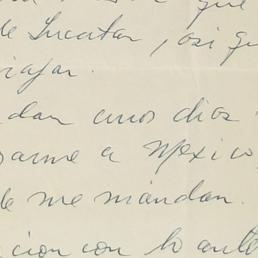 que
de Yucatan, asi qu
viajar.
dan unos dias
arme a Mexico,
de me mandan.
cion con lo ante